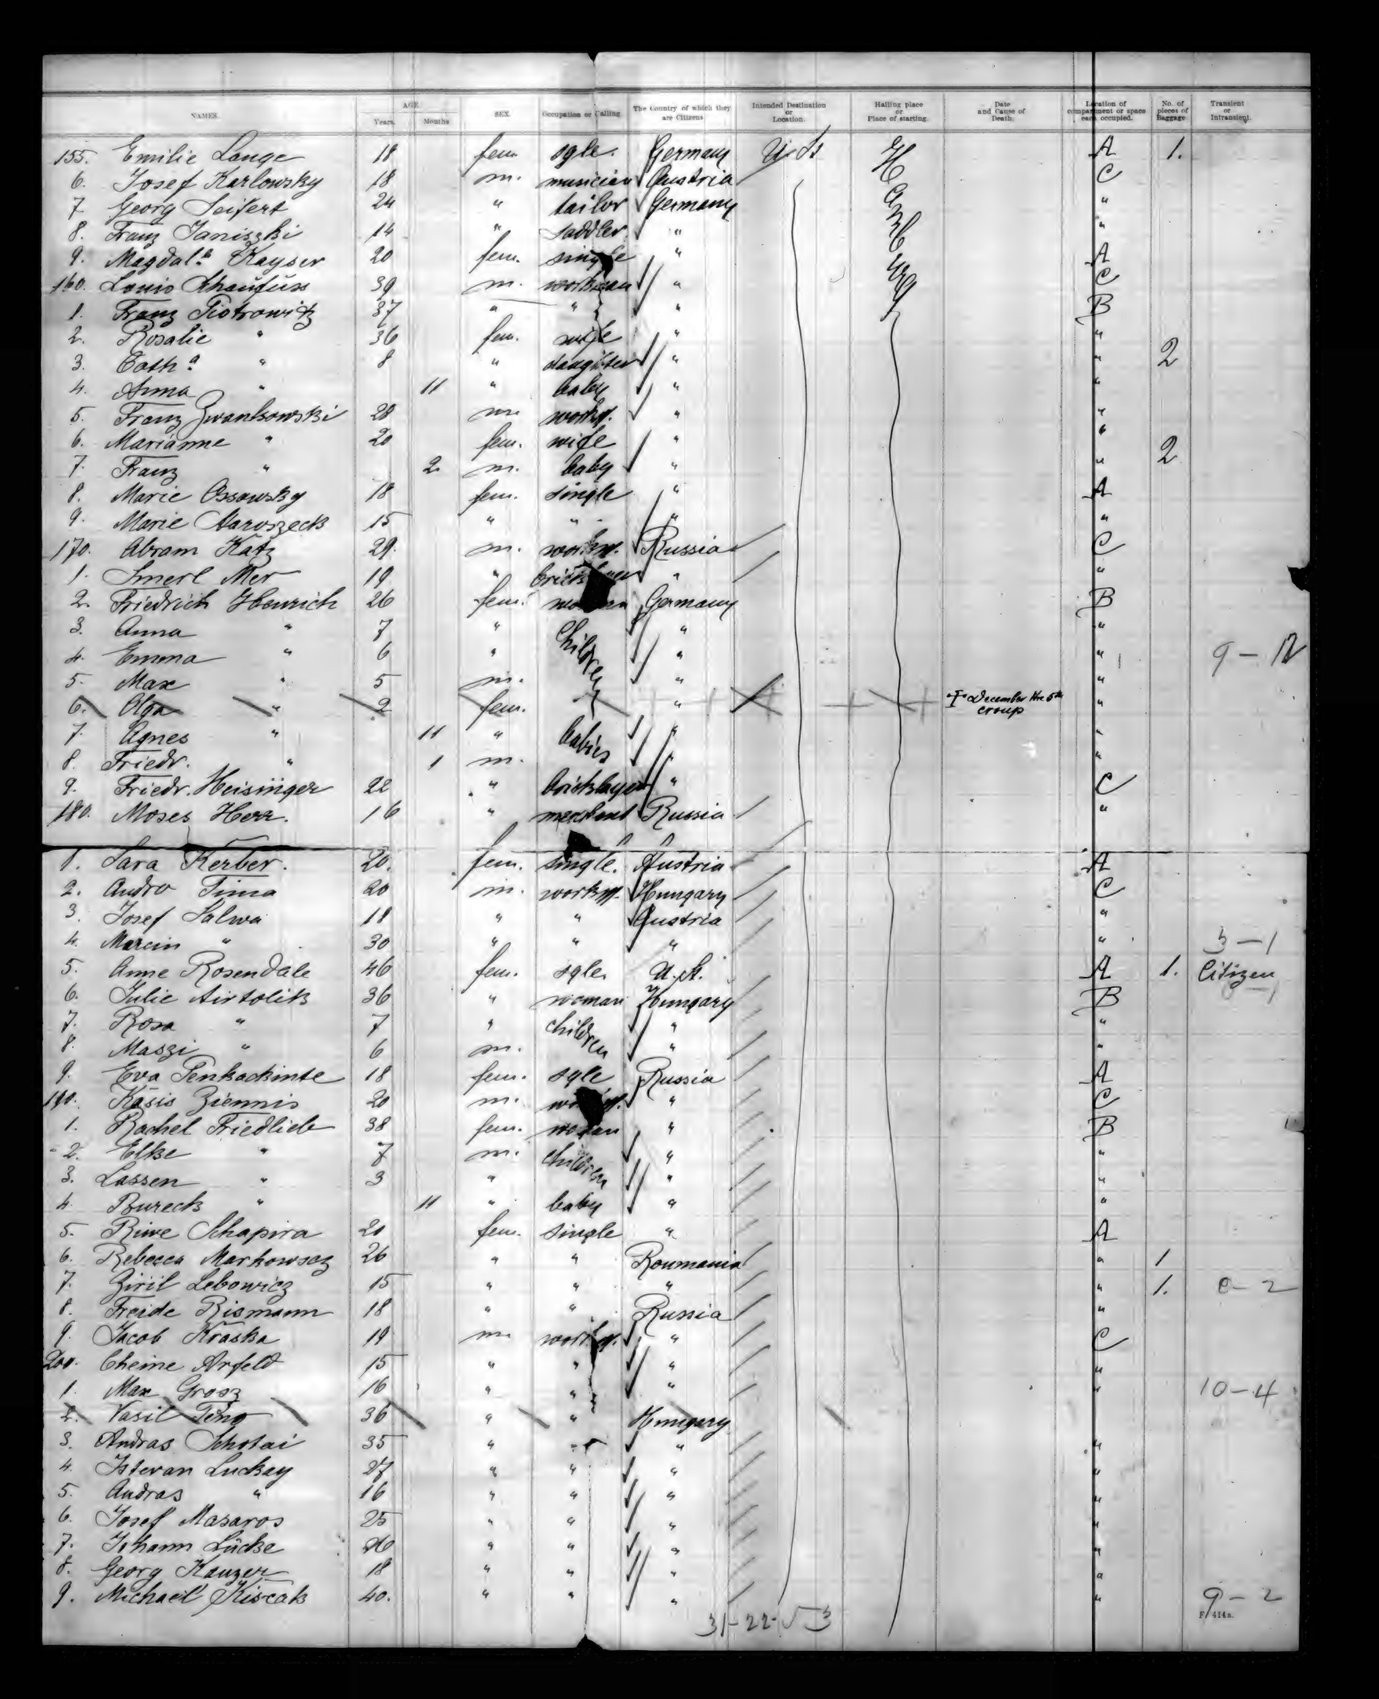 NAMES. AGE. Years. Months SEX. Occupation or Calling. The Country of which they are Citizens Intended Destination or Location. Hailing place or Place of starting. Date and Cause of Death. Location of compartment or space each occupied. No. of pieces of Baggage Transient or Intransient.
155. Emilie Lange 18 fem. sgle. Germany U. S. A 1.
6. Josef Karlowsky 18 m. musician Austria C
7. Georg Seifert 24 " tailor Germany "
8. Franz Janiszki 14 " saddler " "
9. Magdal.a Kayser 20 fem. single " A
160. Louis Schaufuss 39 m. workman " C
1. Franz Piotrowitz 37 " " " B
2. Rosalie " 36 fem. wife " "
3. Cath.a " 8 " daughter " " 2
4. Anna " 11 " baby " "
5. Franz Zwankowski 28 m. workm. " "
6. Marianne " 20 fem. wife " "
7. Franz " 2 m. baby " " 2
8. Marie Ossowsky 18 fem. single " A
9. Marie Haroszeck 15 " " " "
170. Abram Katz 29. m. workm. Russia C
1. Smerl Mer 19 " bricklayer " "
2. Friedrich Henrich 26 fem. woman Germany B
3. Anna " 7 " Children " "
4. Emma " 6 " " "
5. Max " 5 m. " "
6. Olga " 2 fem. " † December the 5th croup "
7. Agnes " 11 " babies " "
8. Friedr. " 1 m. " "
9. Friedr. Heisinger 22 " bricklayer " C
180. Moses Herz. 16 " merchant Russia "
1. Sara Kerber. 20. fem. single. Austria A
2. Andro Tima 20 m. workm. Hungary C
3. Josef Salwa 18 " " Austria "
4. Marcin " 30 " " " "
5. Anne Rosendale 46 fem. sgle. U. S. A 1. Citizen
6. Julie Airtolik 36 " woman Hungary B
7. Rosa " 7 " children " "
8. Maszi " 6 m. " "
9. Eva Penkackinte 18 fem. sgle Russia A
190. Kasis Ziennis 20 m. workm. " C
1. Rachel Friedlieb 38 fem. woman " B
2. Elke " 7 m. children " "
3. Lassen " 3 " " "
4. Bureck " 11 " baby " "
5. Riwe Schapira 20 fem. single " A
6. Rebecca Markowsoz 26 " " Roumania " 1
7. Ziril Lebowicz 15 " " " " 1. 0-2
8. Freide Rismann 18 " " Russia "
9. Jacob Kraska 19 m. workm. " C
200. Cheine Arfeld 15 " " " "
1. Max Grosz 16 " " " " 10-4
2. Vasil Peng 36 " " Hungary
3. Andras Schotai 35 " " " "
4 Istevan Luckay 27 " " " "
5. Andras " 16 " " " "
6. Josef Masaros 25 " " " "
7. Johann Lücke 26 " " " "
8. Georg Kanzer 18 " " " "
9. Michael Kiscak 40. " " " " 9-2
31-22-
F. 414a.